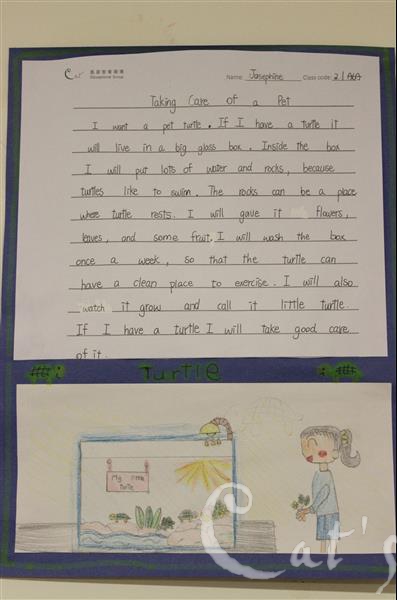 Cat
Educational Group
Name: Josephine Class code: 2 / A6A
Taking Care of a Pet
I want a pet turtle. If I have a turtle it
will live in a big glass box. Inside the box
I will put lots of water and rocks, because
turtles like to swim. The rocks can be a place
where turtle rests. I will gave it flowers,
leaves, and some fruit. I will wash the box
once a week, so that the turtle can
have a clean place to exercise. I will also
watch it grow and call it little turtle.
If I have a turtle I will take good care
of it.
Turtle
My little
turtle
Cat's